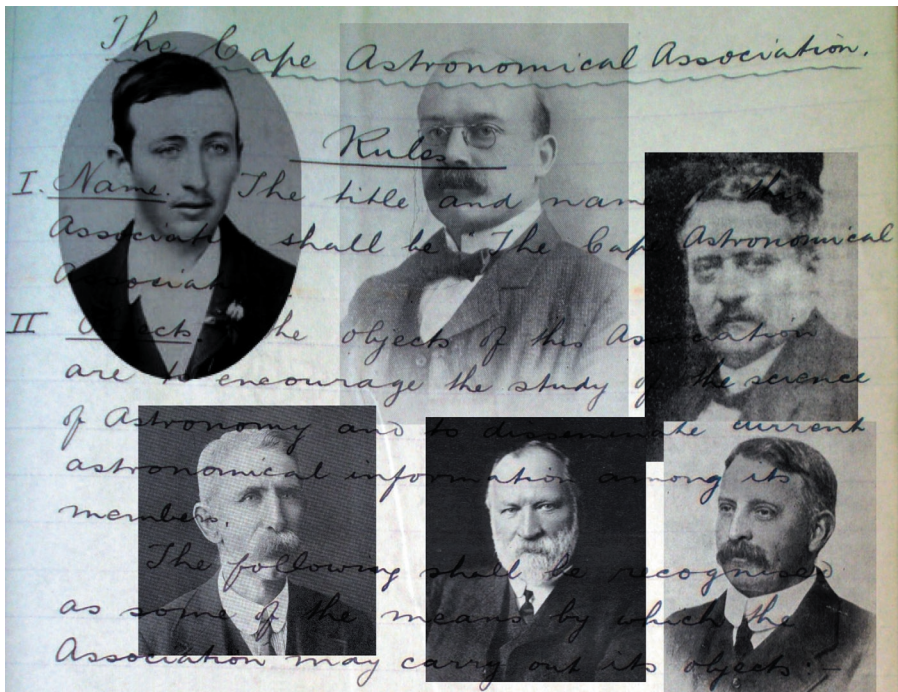 The Cape Astronomical Association.
Rules
I. Name. The title and name the
Association shall be "The Cape Astronomical
Association.
II Objects. The objects of this Association
are to encourage the study of the science
of Astronomy and to disseminate current
astronomical information among its
members.
The following shall be recognised
as some of the means by which the
Association may carry out its objects:-